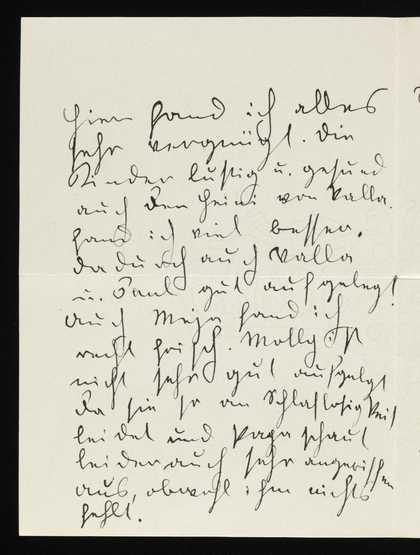 Hier fand ich alles
sehr vergnügt. Die
Kinder lustig u. gesund
auch den Heini von Valla.
fand ich viel besser.
dadurch auch Valla
u. Paul gut aufgelegt
auch Meja fand ich
recht frisch. Molly ist
nicht sehr gut aufgelgt
da sie so an Schlaflosigkeit
leidet und Papa schaut
leider auch sehr angeriffen
aus, obwohl ihm nichts
fehlt.